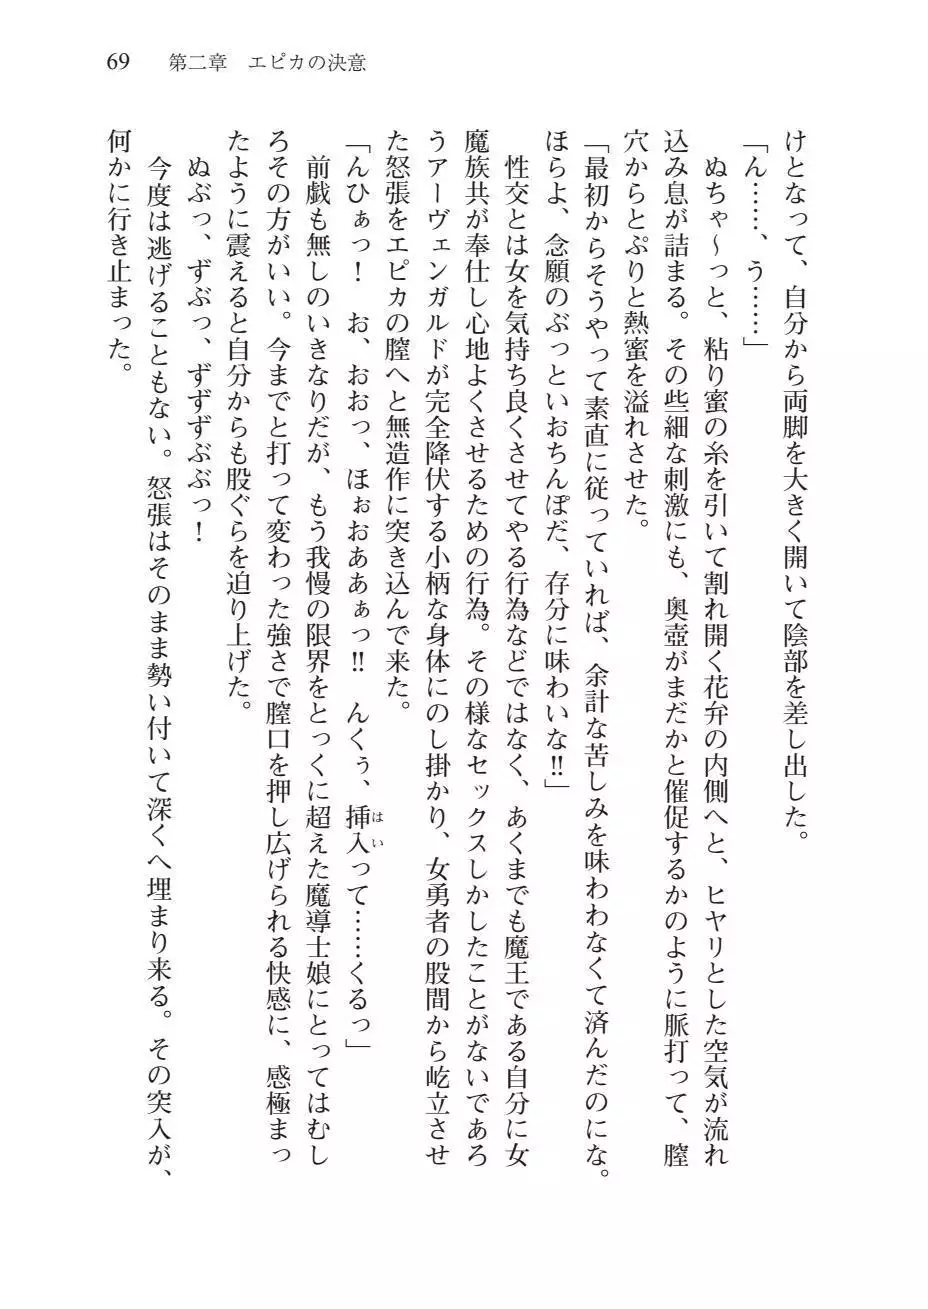 69　第二章　エピカの決意
けとなって、自分から両脚を大きく開いて陰部を差し出した。
「ん……、う……」
　ぬちゃ～っと、粘り蜜の糸を引いて割れ開く花弁の内側へと、ヒヤリとした空気が流れ
込み息が詰まる。その些細な刺激にも、奥壺がまだかと催促するかのように脈打って、膣
穴からとぷりと熱蜜を溢れさせた。
「最初からそうやって素直に従っていれば、余計な苦しみを味わわなくて済んだのにな。
ほらよ、念願のぶっといおちんぽだ、存分に味わいな‼」
　性交とは女を気持ち良くさせてやる行為などではなく、あくまでも魔王である自分に女
魔族共が奉仕し心地よくさせるための行為。その様なセックスしかしたことがないであろ
うアーヴェンガルドが完全降伏する小柄な身体にのし掛かり、女勇者の股間から屹立させ
た怒張をエピカの膣へと無造作に突き込んで来た。
「んひぁっ！　お、おおっ、ほぉおああぁっ‼　んくぅ、挿入はいって……くるっ」
　前戯も無しのいきなりだが、もう我慢の限界をとっくに超えた魔導士娘にとってはむし
ろその方がいい。今までと打って変わった強さで膣口を押し広げられる快感に、感極まっ
たように震えると自分からも股ぐらを迫り上げた。
　ぬぶっ、ずぶっ、ずずずぶぶっ！
　今度は逃げることもない。怒張はそのまま勢い付いて深くへ埋まり来る。その突入が、
何かに行き止まった。